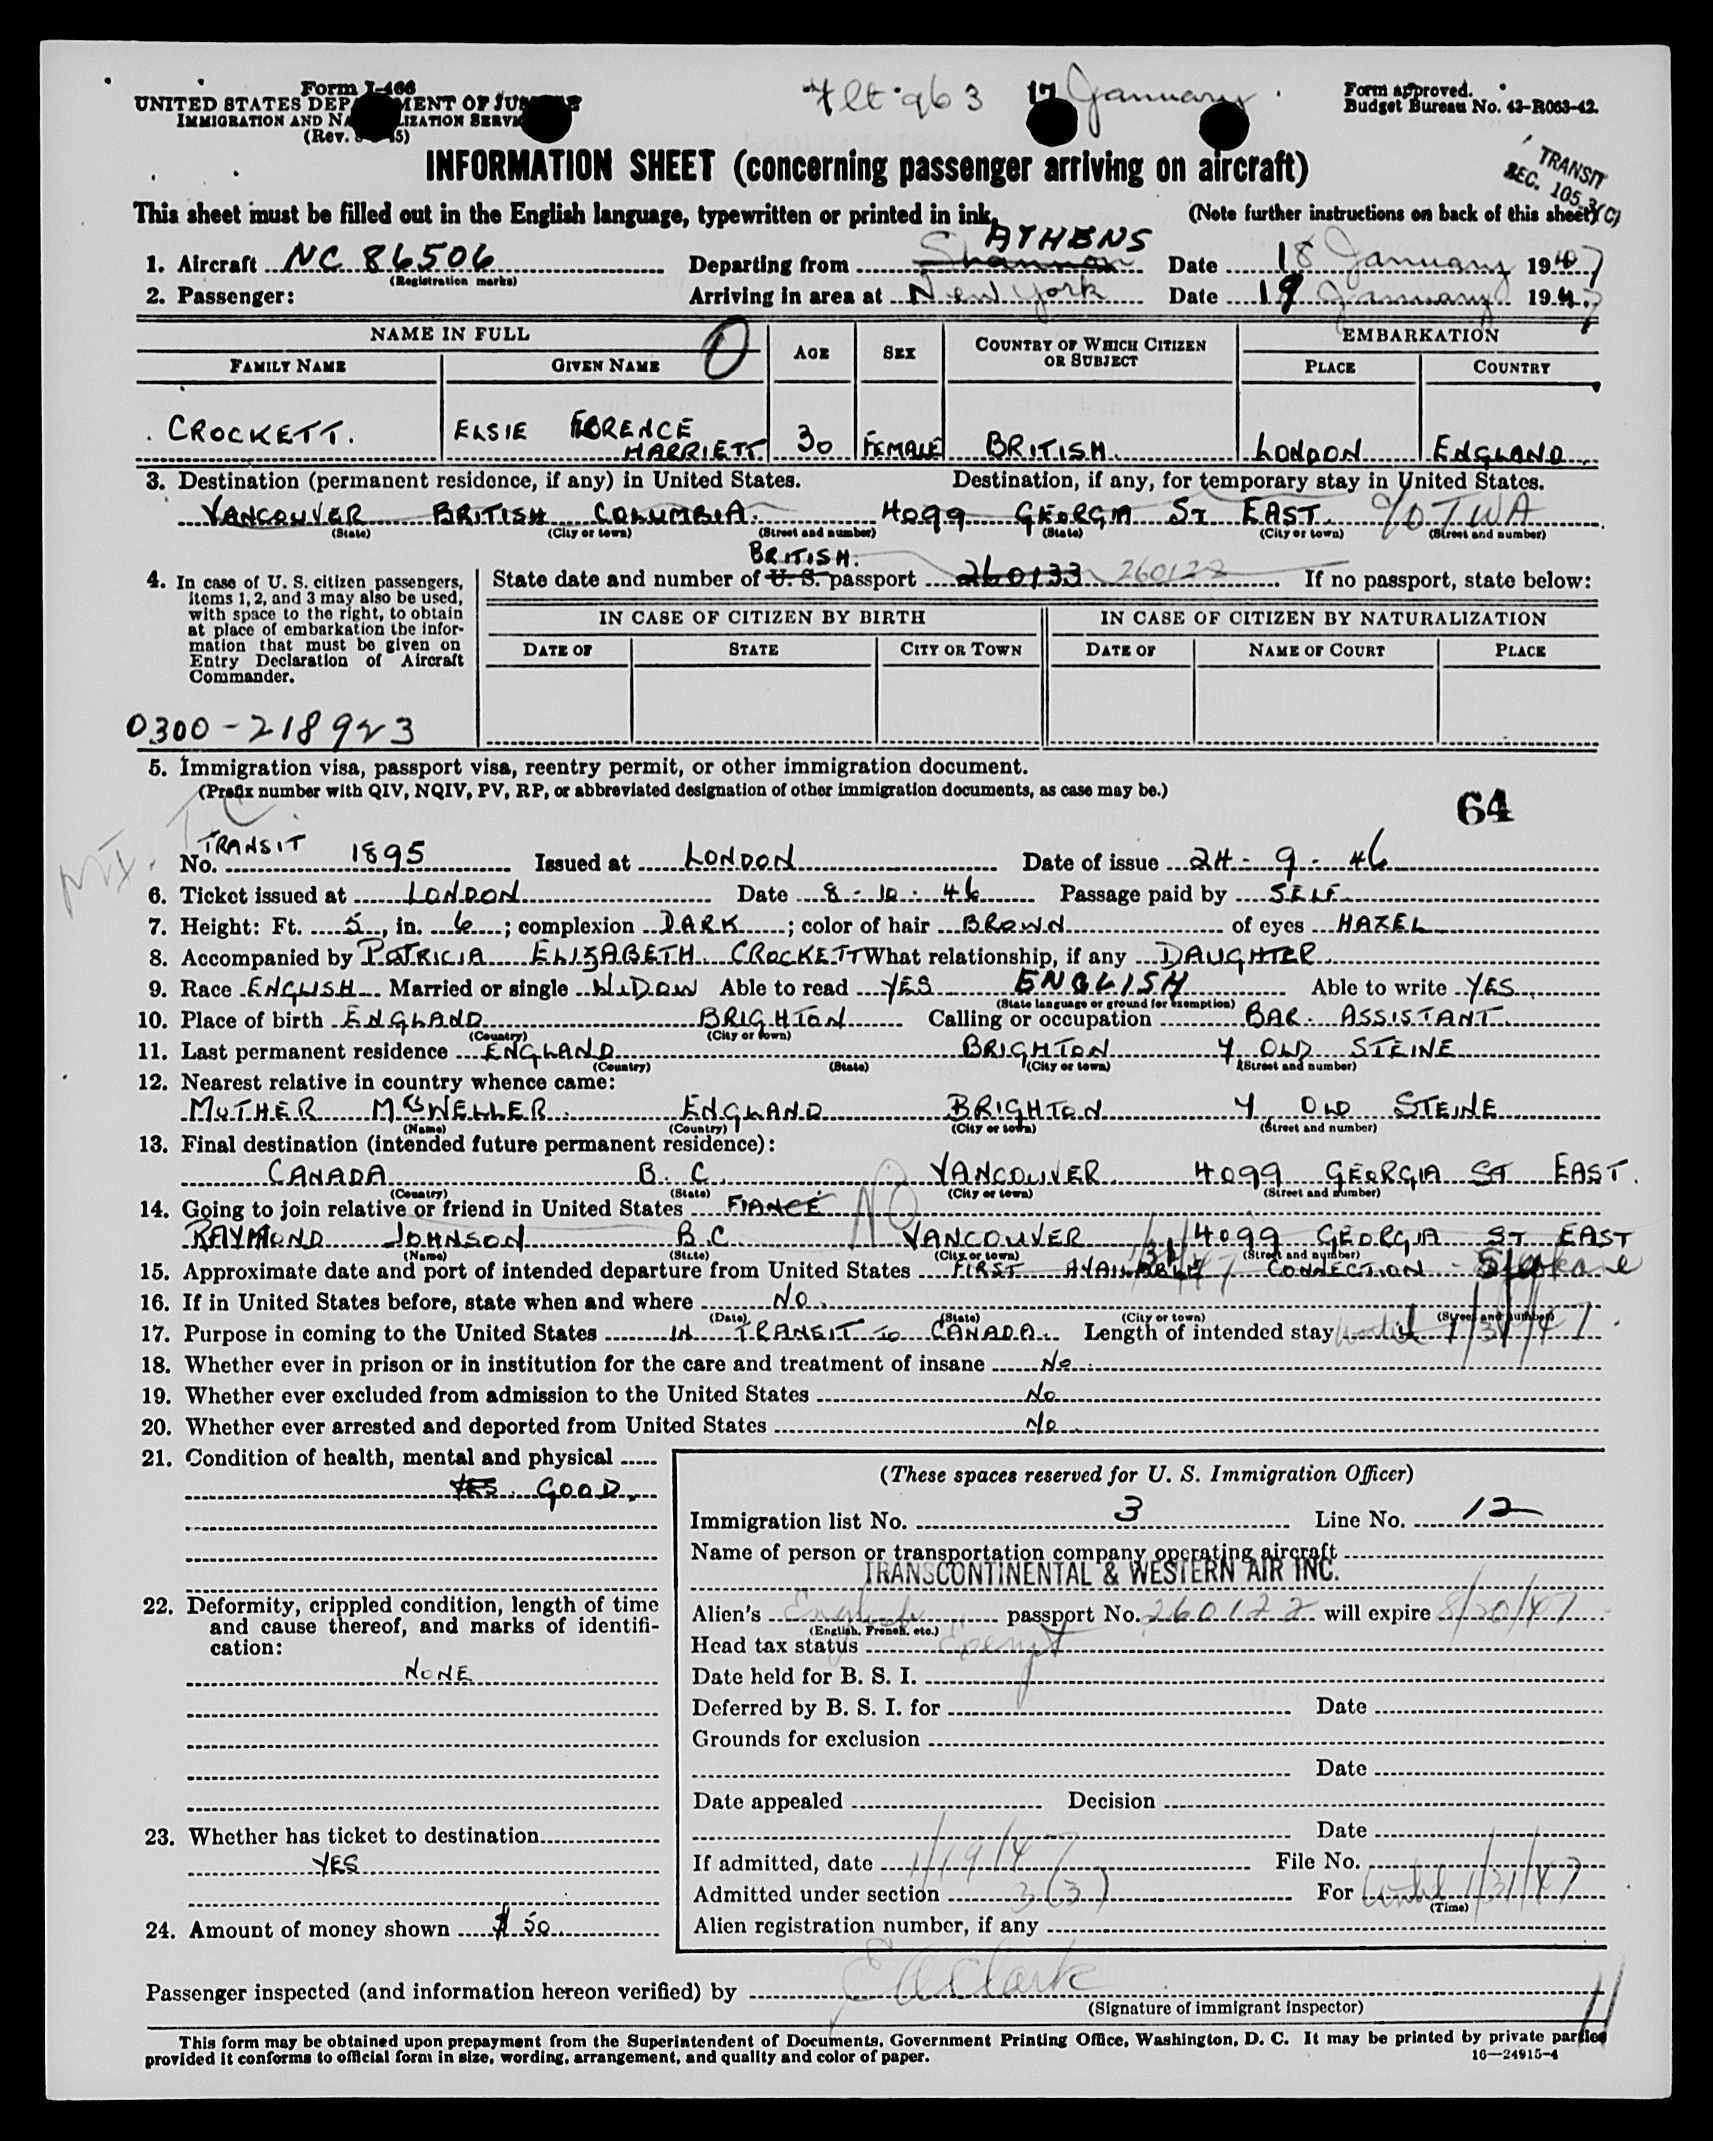 Form I-466
UNITED STATES DEPARTMENT OF JUSTICE
IMMIGRATION AND NATURALIZATION SERVICE
(Rev. 45)
Flt 963 17 January
Form approved.
Budget Bureau No. 43-R063-42.
INFORMATION SHEET (concerning passenger arriving on aircraft)
TRANSIT
SEC. 105.3(C)
This sheet must be filled out in the English language, typewritten or printed in ink. (Note further instructions on back of this sheet)
ATHENS
1. Aircraft NC 86506 Departing from Shannon Date 18 January 1947
(Registration marks)
2. Passenger: Arriving in area at New York Date 19 January 1947
NAME IN FULL AGE SEX COUNTRY OF WHICH CITIZEN OR SUBJECT EMBARKATION
FAMILY NAME GIVEN NAME PLACE COUNTRY
CROCKETT. ELSIE FLORENCE HARRIETT 30 FEMALE BRITISH. LONDON ENGLAND.
3. Destination (permanent residence, if any) in United States. Destination, if any, for temporary stay in United States.
VANCOUVER BRITISH COLUMBIA. 4099 GEORGIA ST EAST. c/o TWA
(State) (City or town) (Street and number) (State) (City or town) (Street and number)
BRITISH.
4. In case of U. S. citizen passengers, items 1, 2, and 3 may also be used, with space to the right, to obtain at place of embarkation the information that must be given on Entry Declaration of Aircraft Commander.
State date and number of U. S. passport 260133 260122 If no passport, state below:
IN CASE OF CITIZEN BY BIRTH IN CASE OF CITIZEN BY NATURALIZATION
DATE OF STATE CITY OR TOWN DATE OF NAME OF COURT PLACE
0300-218923
5. Immigration visa, passport visa, reentry permit, or other immigration document.
(Prefix number with QIV, NQIV, PV, RP, or abbreviated designation of other immigration documents, as case may be.)
64
TRANSIT
No. 1895 Issued at LONDON Date of issue 24-9-46
6. Ticket issued at LONDON Date 8-10-46 Passage paid by SELF
7. Height: Ft. 5, in. 6; complexion DARK; color of hair BROWN of eyes HAZEL
8. Accompanied by PATRICIA ELIZABETH CROCKETT What relationship, if any DAUGHTER
9. Race ENGLISH Married or single WIDOW Able to read YES ENGLISH Able to write YES
(State language or ground for exemption)
10. Place of birth ENGLAND BRIGHTON Calling or occupation BAR ASSISTANT
(Country) (City or town)
11. Last permanent residence ENGLAND BRIGHTON 4 OLD STEINE
(Country) (State) (City or town) (Street and number)
12. Nearest relative in country whence came:
MOTHER MRS WELLER. ENGLAND BRIGHTON 4, OLD STEINE
(Name) (Country) (City or town) (Street and number)
13. Final destination (intended future permanent residence):
CANADA B. C. VANCOUVER 4099 GEORGIA ST EAST.
(Country) (State) (City or town) (Street and number)
14. Going to join relative or friend in United States FIANCÉ NO
RAYMOND JOHNSON B.C VANCOUVER 4099 GEORGIA ST EAST
(Name) (State) (City or town) (Street and number)
15. Approximate date and port of intended departure from United States FIRST AVAILABLE CONNECTION - Spokane 1/31/47
16. If in United States before, state when and where NO.
(Date) (State) (City or town) (Street and number)
17. Purpose in coming to the United States IN TRANSIT TO CANADA. Length of intended stay until 1/31/47.
18. Whether ever in prison or in institution for the care and treatment of insane No.
19. Whether ever excluded from admission to the United States No
20. Whether ever arrested and deported from United States No
21. Condition of health, mental and physical
YES. GOOD.
22. Deformity, crippled condition, length of time and cause thereof, and marks of identification:
NONE
23. Whether has ticket to destination
YES
24. Amount of money shown $ 50
(These spaces reserved for U. S. Immigration Officer)
Immigration list No. 3 Line No. 12
Name of person or transportation company operating aircraft
TRANSCONTINENTAL & WESTERN AIR INC.
Alien's English passport No. 260122 will expire 8/20/47
(English, French, etc.)
Head tax status Exempt
Date held for B. S. I.
Deferred by B. S. I. for Date
Grounds for exclusion
Date
Date appealed Decision
Date
If admitted, date 1/19/47 File No.
Admitted under section 3(3) For until 1/31/47
(Time)
Alien registration number, if any
Passenger inspected (and information hereon verified) by E A Clark
(Signature of immigrant inspector)
This form may be obtained upon prepayment from the Superintendent of Documents, Government Printing Office, Washington, D. C. It may be printed by private parties
provided it conforms to official form in size, wording, arrangement, and quality and color of paper. 16—24915-4